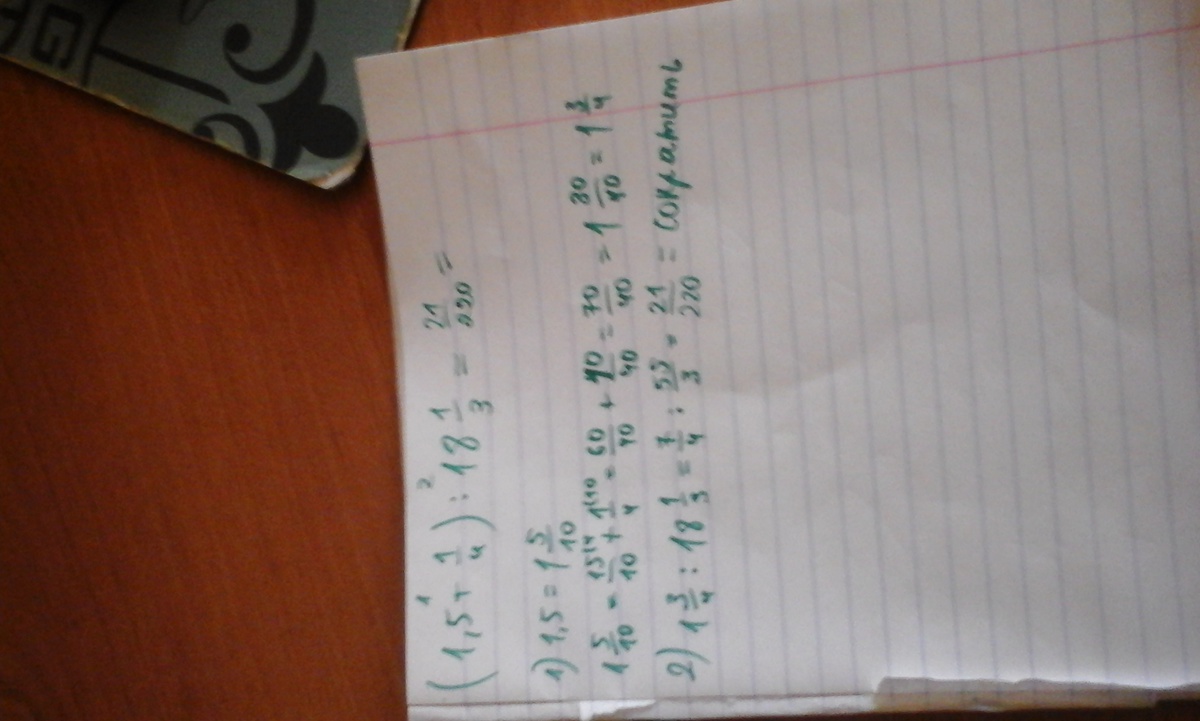 (1,5 + 1/4) : 18 1/3 = 21/220 =
1) 1,5 = 1 5/10
1 5/10 = 15/10 + 1/4 = 60/40 + 10/40 = 70/40 = 1 30/40 = 1 3/4
2) 1 3/4 : 18 1/3 = 7/4 : 55/3 = 21/220 = сократить